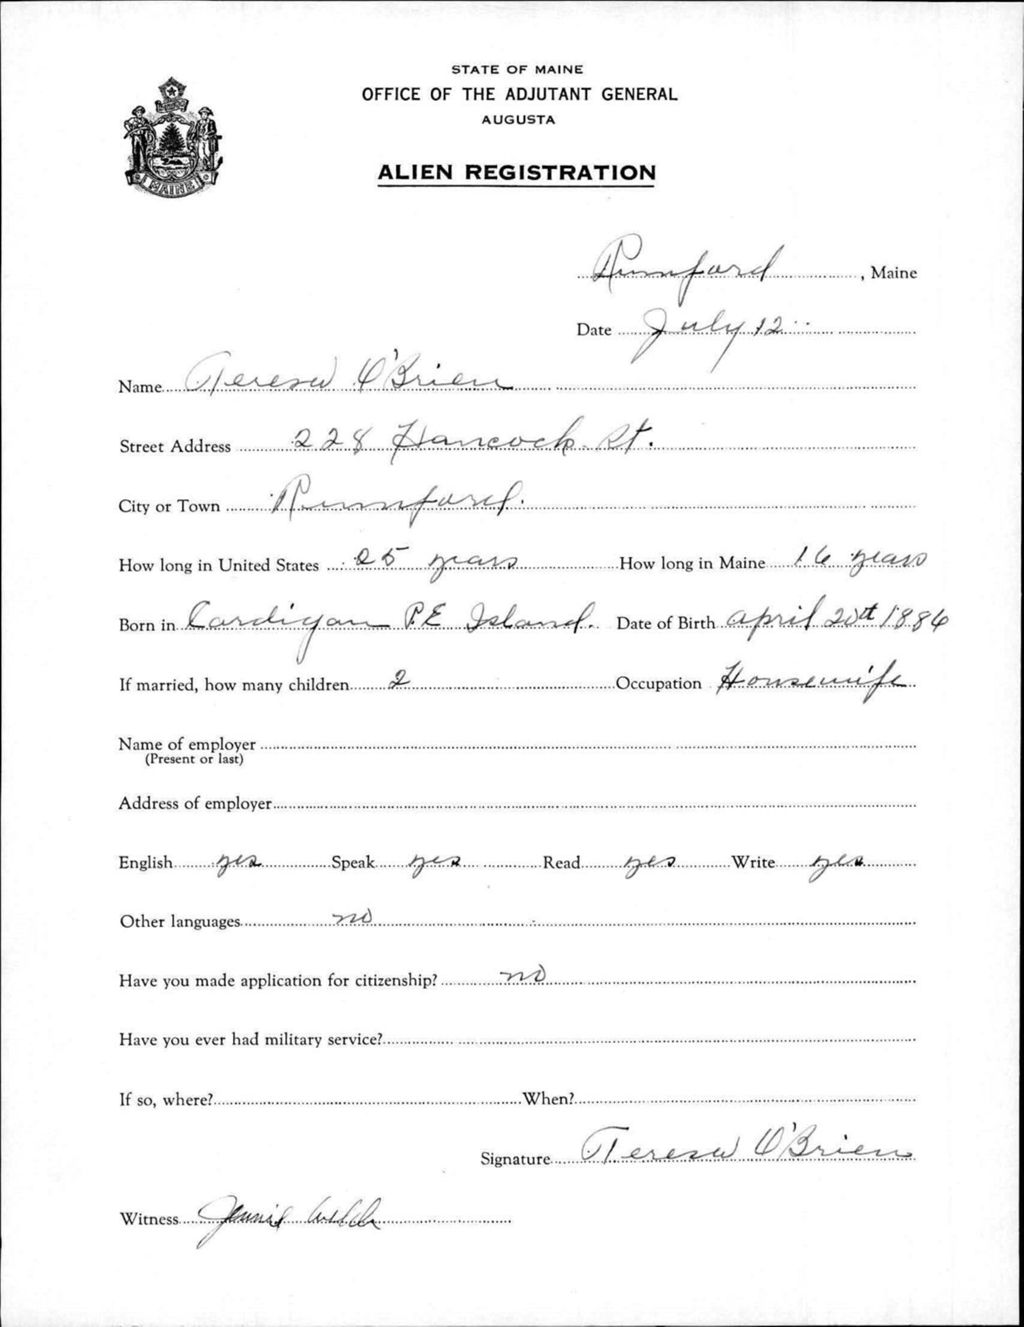 STATE OF MAINE
OFFICE OF THE ADJUTANT GENERAL
AUGUSTA
MAINE
ALIEN REGISTRATION
Rumford, Maine
Date July 12
Name Teresa O'Brien
Street Address 228 Hancock St.
City or Town Rumford.
How long in United States 25 years How long in Maine 16 years
Born in Cardigan P.E. Island. Date of Birth April 20th 1886
If married, how many children 2 Occupation Housewife
Name of employer
(Present or last)
Address of employer
English yes Speak yes Read yes Write yes
Other languages no
Have you made application for citizenship? no
Have you ever had military service?
If so, where? When?
Signature Teresa O'Brien
Witness Jennie Welch